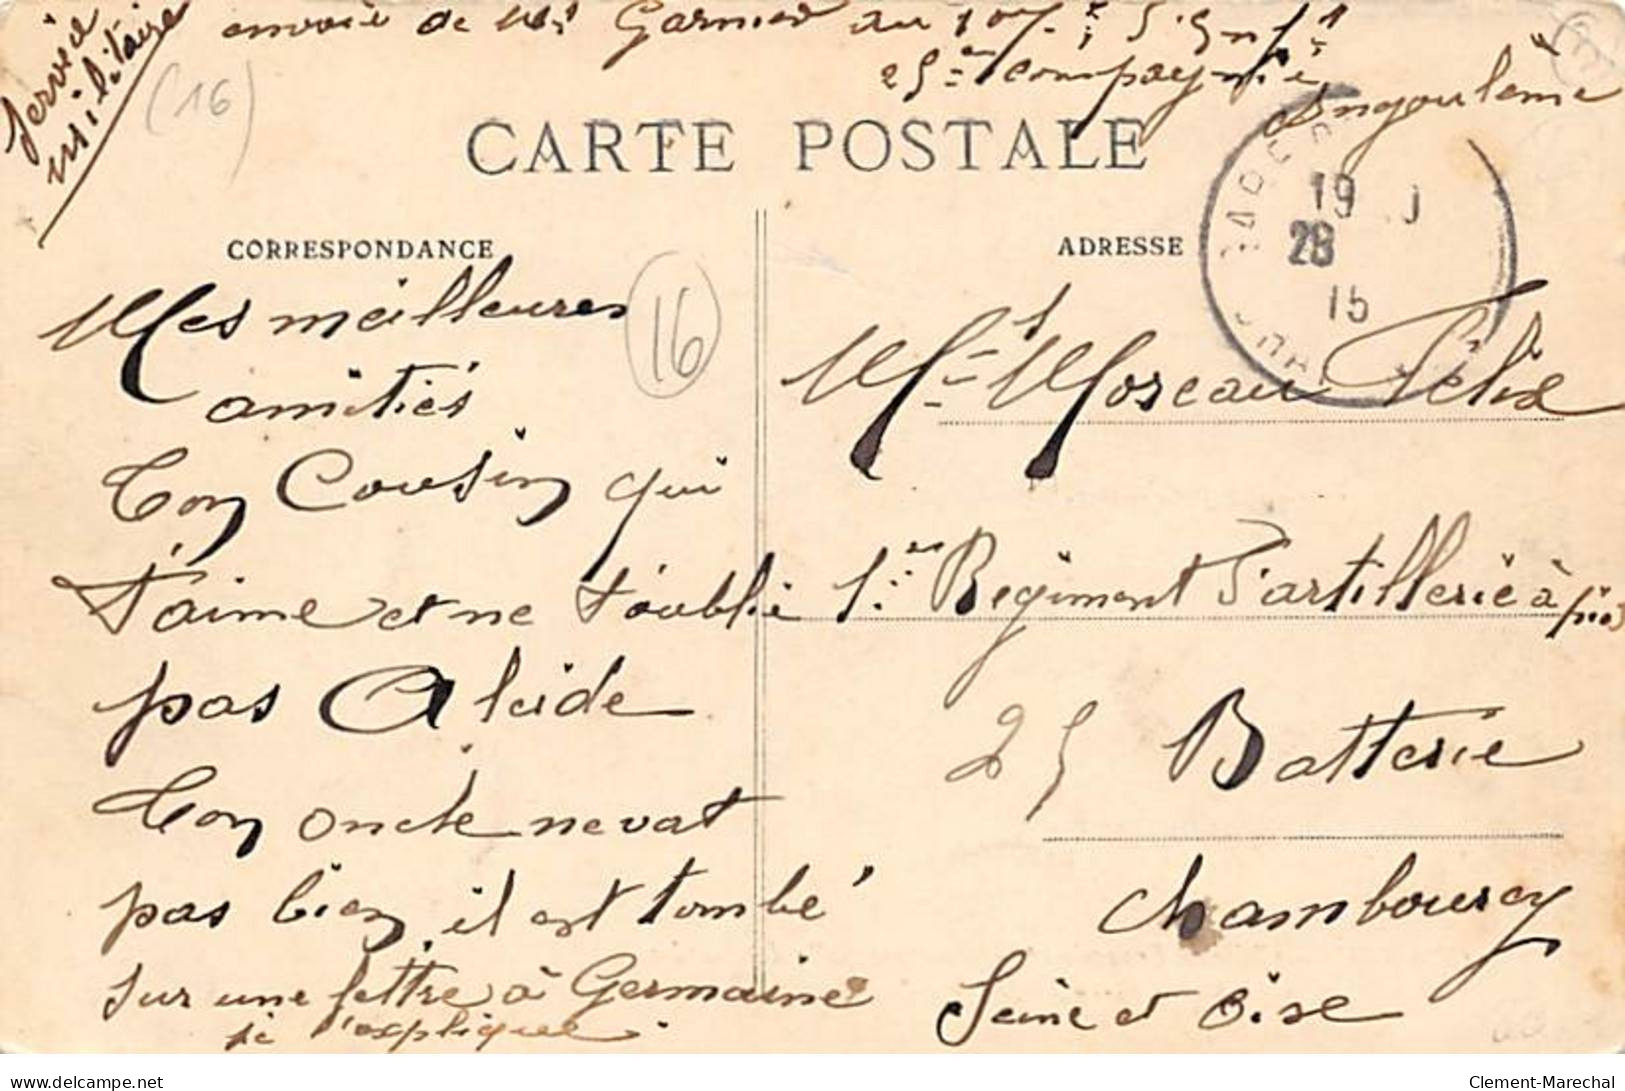 Service
militaire
envoie de Mr Garnier au 107e d'Inf
25me Compagnie
Angoulême
(16)
CARTE POSTALE
CORRESPONDANCE
ADRESSE
19
28
15
16
Mes meilleures
amitiés
Ton Cousin qui
t'aime et ne t'oublie
pas Alcide
Ton oncle ne vat
pas bien, il est tombé
sur une lettre à Germaine
je l'explique.
Mr Moreau Félix
1er Régiment d'artillerie à pied
25 Batterie
Chambourcy
Seine et Oise
delcampe.net
Clement-Marechal